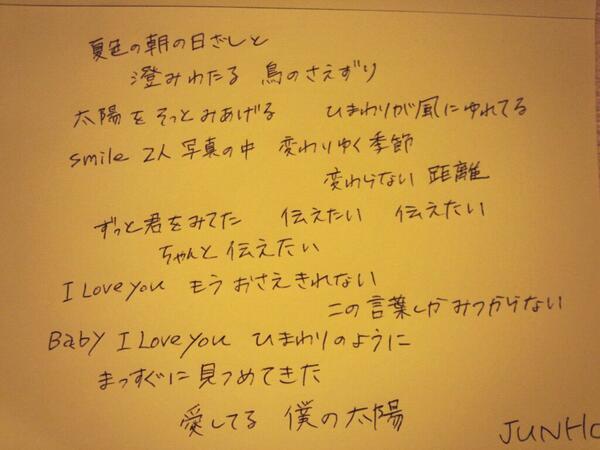 夏色の朝の日ざしと
澄みわたる 鳥のさえずり
太陽をそっとみあげる ひまわりが風にゆれてる
smile 2人 写真の中 変わりゆく季節
変わらない 距離
ずっと君をみてた 伝えたい 伝えたい
ちゃんと伝えたい
I Love you もうおさえきれない
この言葉しかみつからない
Baby I Love you ひまわりのように
まっすぐに見つめてきた
愛してる 僕の太陽
JUNHO